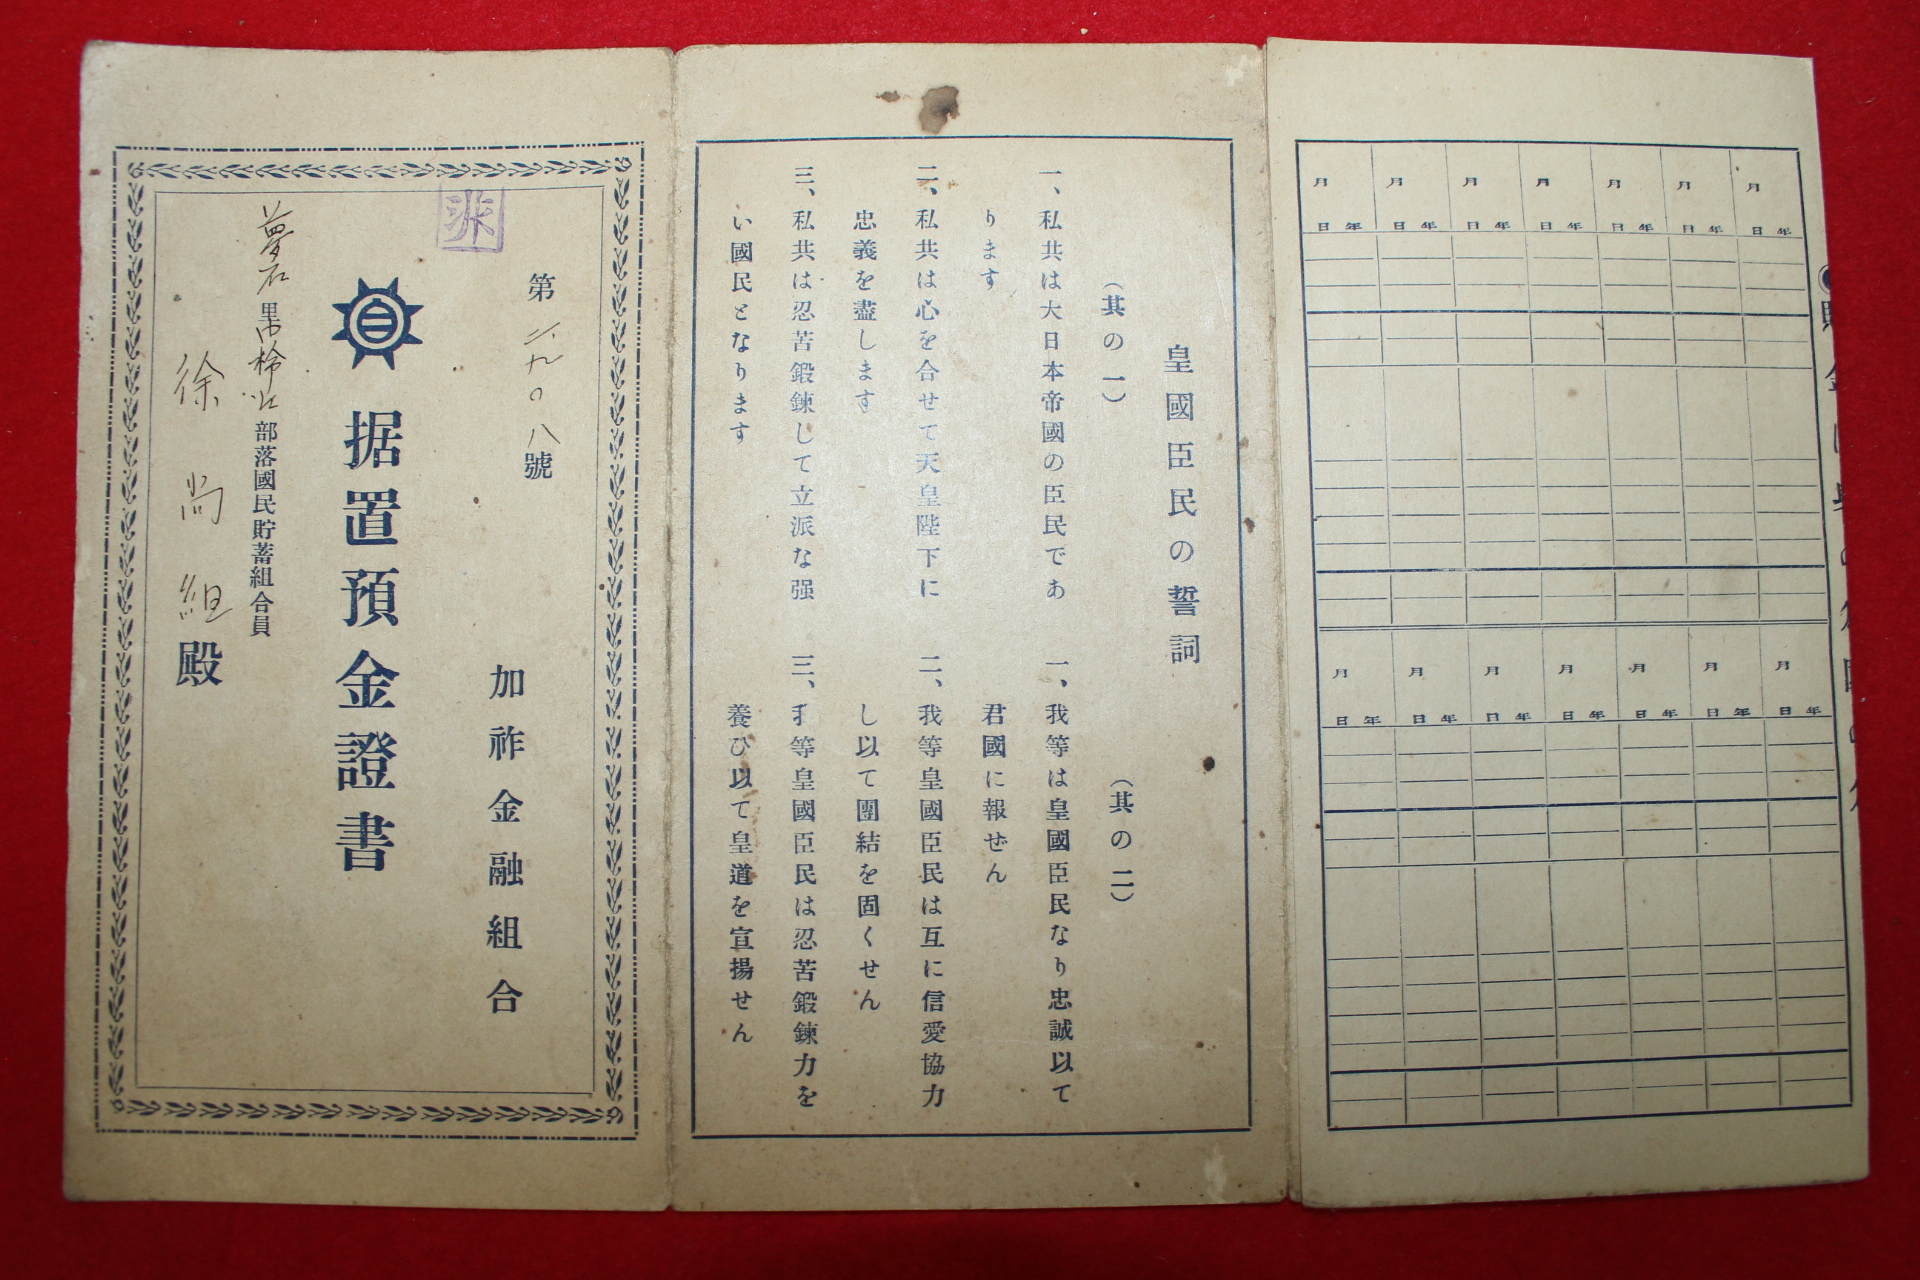 第二九〇八號
加祚金融組合
据置預金證書
里
部落國民貯蓄組合員
徐尚組殿
皇國臣民の誓詞
（其の一）
一、私共は大日本帝國の臣民であ
ります
二、私共は心を合せて天皇陛下に
忠義を盡します
三、私共は忍苦鍛錬して立派な强
い國民となります
（其の二）
一、我等は皇國臣民なり忠誠以て
君國に報ぜん
二、我等皇國臣民は互に信愛協力
し以て團結を固くせん
三、我等皇國臣民は忍苦鍛錬力を
養ひ以て皇道を宣揚せん
月 月 月 月 月 月 月
日年 日年 日年 日年 日年 日年 日年
月 月 月 月 月 月 月
日年 日年 日年 日年 日年 日年 日年